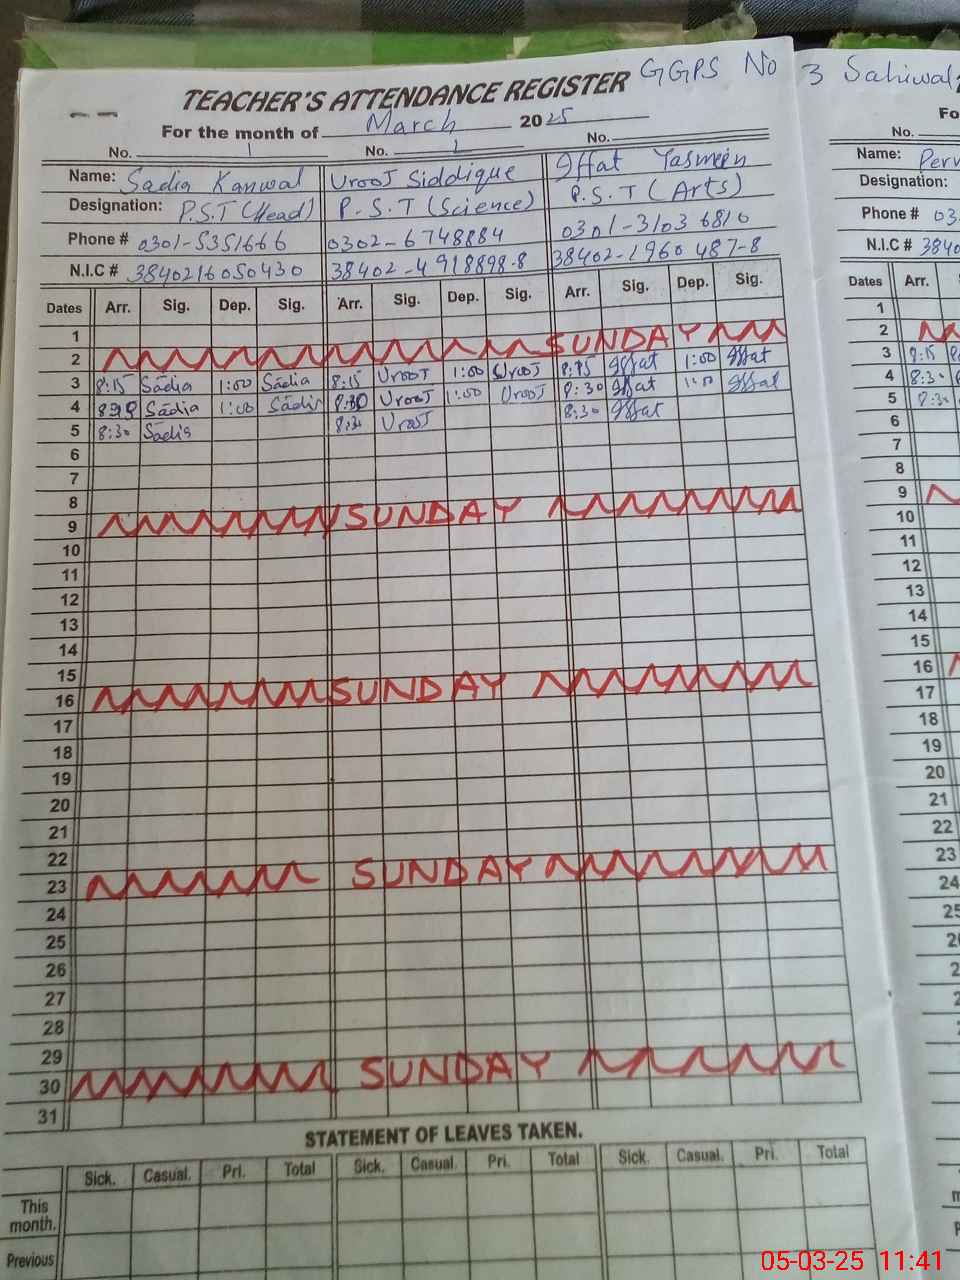 GGPS No 3 Sahiwal
TEACHER'S ATTENDANCE REGISTER
For the month of March 2025
No. 1 No. 2 No.
Name: Sadia Kanwal Urooj Siddique Iffat Yasmeen
Designation: P.S.T (Head) P.S.T (Science) P.S.T (Arts)
Phone # 0301-5351666 0302-6748884 0301-3103 6810
N.I.C # 3840216050430 38402-4918898-8 38402-1960 487-8
Dates Arr. Sig. Dep. Sig. Arr. Sig. Dep. Sig. Arr. Sig. Dep. Sig.
1
2 SUNDAY
3 8:15 Sadia 1:00 Sadia 8:15 Urooj 1:00 Urooj 8:15 Iffat 1:00 Iffat
4 Sadia 1:00 Sadia 8:30 Urooj 1:00 Urooj 8:30 Iffat 1:00 Iffat
5 8:30 Sadia 8:30 Urooj 8:30 Iffat
6
7
8
9 SUNDAY
10
11
12
13
14
15
16 SUNDAY
17
18
19
20
21
22
23 SUNDAY
24
25
26
27
28
29
30 SUNDAY
31
STATEMENT OF LEAVES TAKEN.
Sick. Casual. Pri. Total Sick. Casual. Pri. Total Sick. Casual. Pri. Total
This
month.
Previous
No.
Name:
Designation:
Phone # 03
N.I.C # 3840
Dates Arr.
1
2
3 8:15
4 8:30
5 8:30
6
7
8
9
10
11
12
13
14
15
16
17
18
19
20
21
22
23
24
05-03-25 11:41